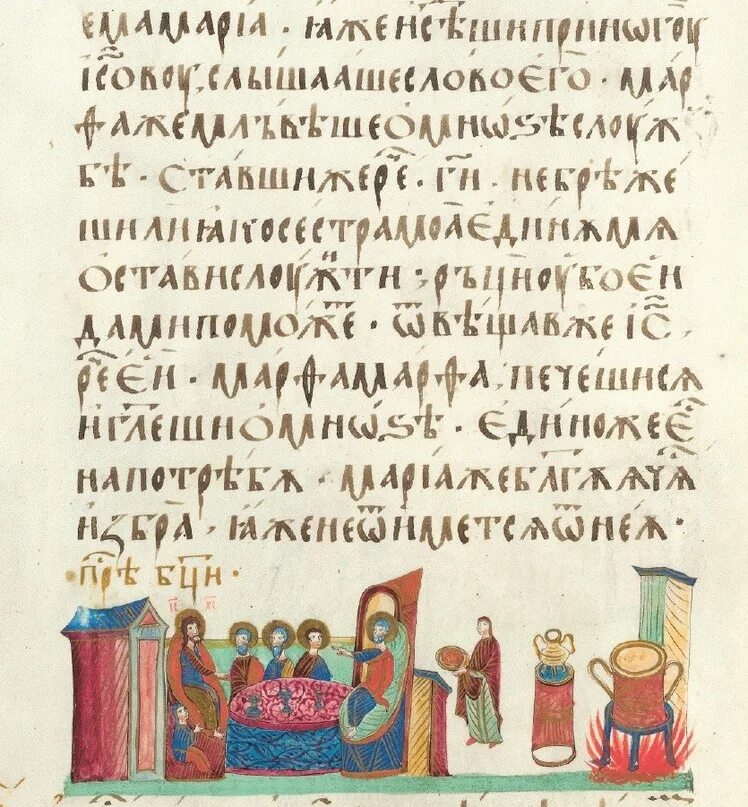 емамарїа · ꙗжеисѣшипринѡгоу
іс҃овоу, слышаашесловоего · мар
ѳажемлъвѣшеомнѡѕѣслоуж
бѣ · ставшижерⷱ҇е · гн҃ · небрѣже
шилиꙗкосестрамоаединѫмѧ
оставислоужⷤити ; рьциоубоеи
дамипоможеⷮ · ѿвѣщавжеіс҃ ·
рⷱ҇ееи · марѳамарѳа, печешисѧ
игл҃ешиомнѡѕѣ · единожеес҃
напотрѣбѫ · марїажеблг҃ѫѧчѧ
избра · ꙗженеѿиметсѧѿнеѧ ·
· прⷣѣ бц҃и ·
іс҃ хс҃